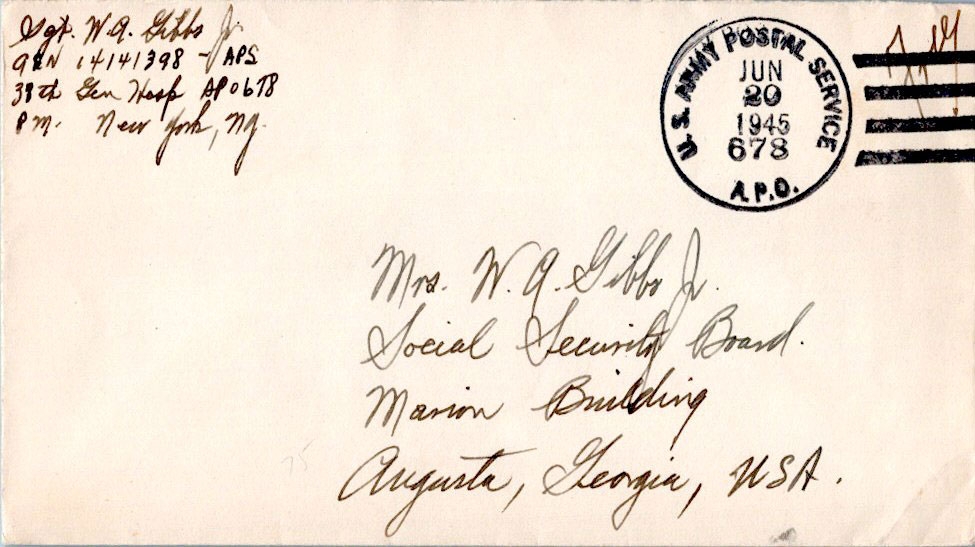 Sgt. W.A. Gibbs Jr.
ASN 14141398 - APS
38th Gen Hosp APO 678
P.M. New York, NY.
U. S. ARMY POSTAL SERVICE
JUN
20
1945
678
A.P.O.
Mrs. W. A. Gibbs Jr.
Social Security Board.
Marion Building
Augusta, Georgia, USA.